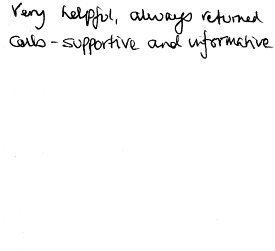 Very helpful, always returned
calls - supportive and informative